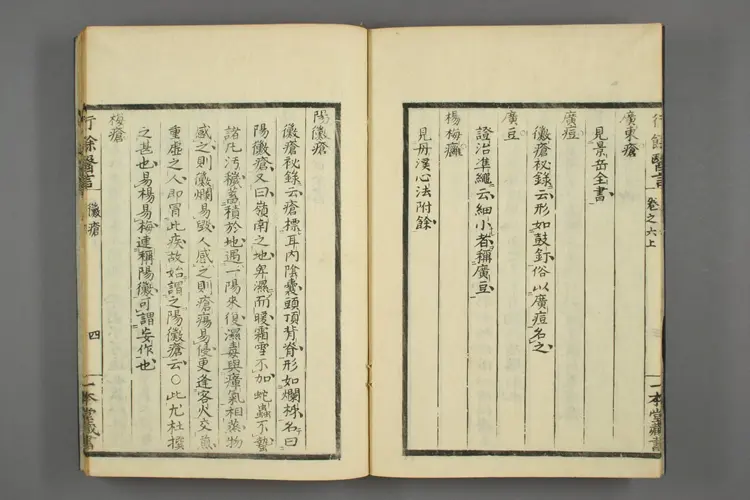 行餘醫言 卷之六上 一本堂藏書
廣東瘡
見景岳全書
廣痘
黴瘡祕錄云形如鼓釘俗以廣痘名之
廣豆
證治準繩云細小者稱廣豆
楊梅癘
見丹溪心法附餘
陽黴瘡
黴瘡祕錄云瘡標耳內陰囊頭頂背脊形如爛柹名曰
陽黴瘡又曰嶺南之地卑濕而暖霜雪不加蛇蟲不蟄
諸凡污穢蓄積於地遇一陽來復濕毒與瘴氣相蒸物
感之則黴爛易毀人感之則瘡瘍易侵更逢客火交煎
重虛之人即冒此疾故始謂之陽黴瘡云〇此尤杜撰
之甚也易楊易梅連稱陽黴可謂妄作也
梅瘡
行餘醫言 黴瘡 四 一本堂藏書